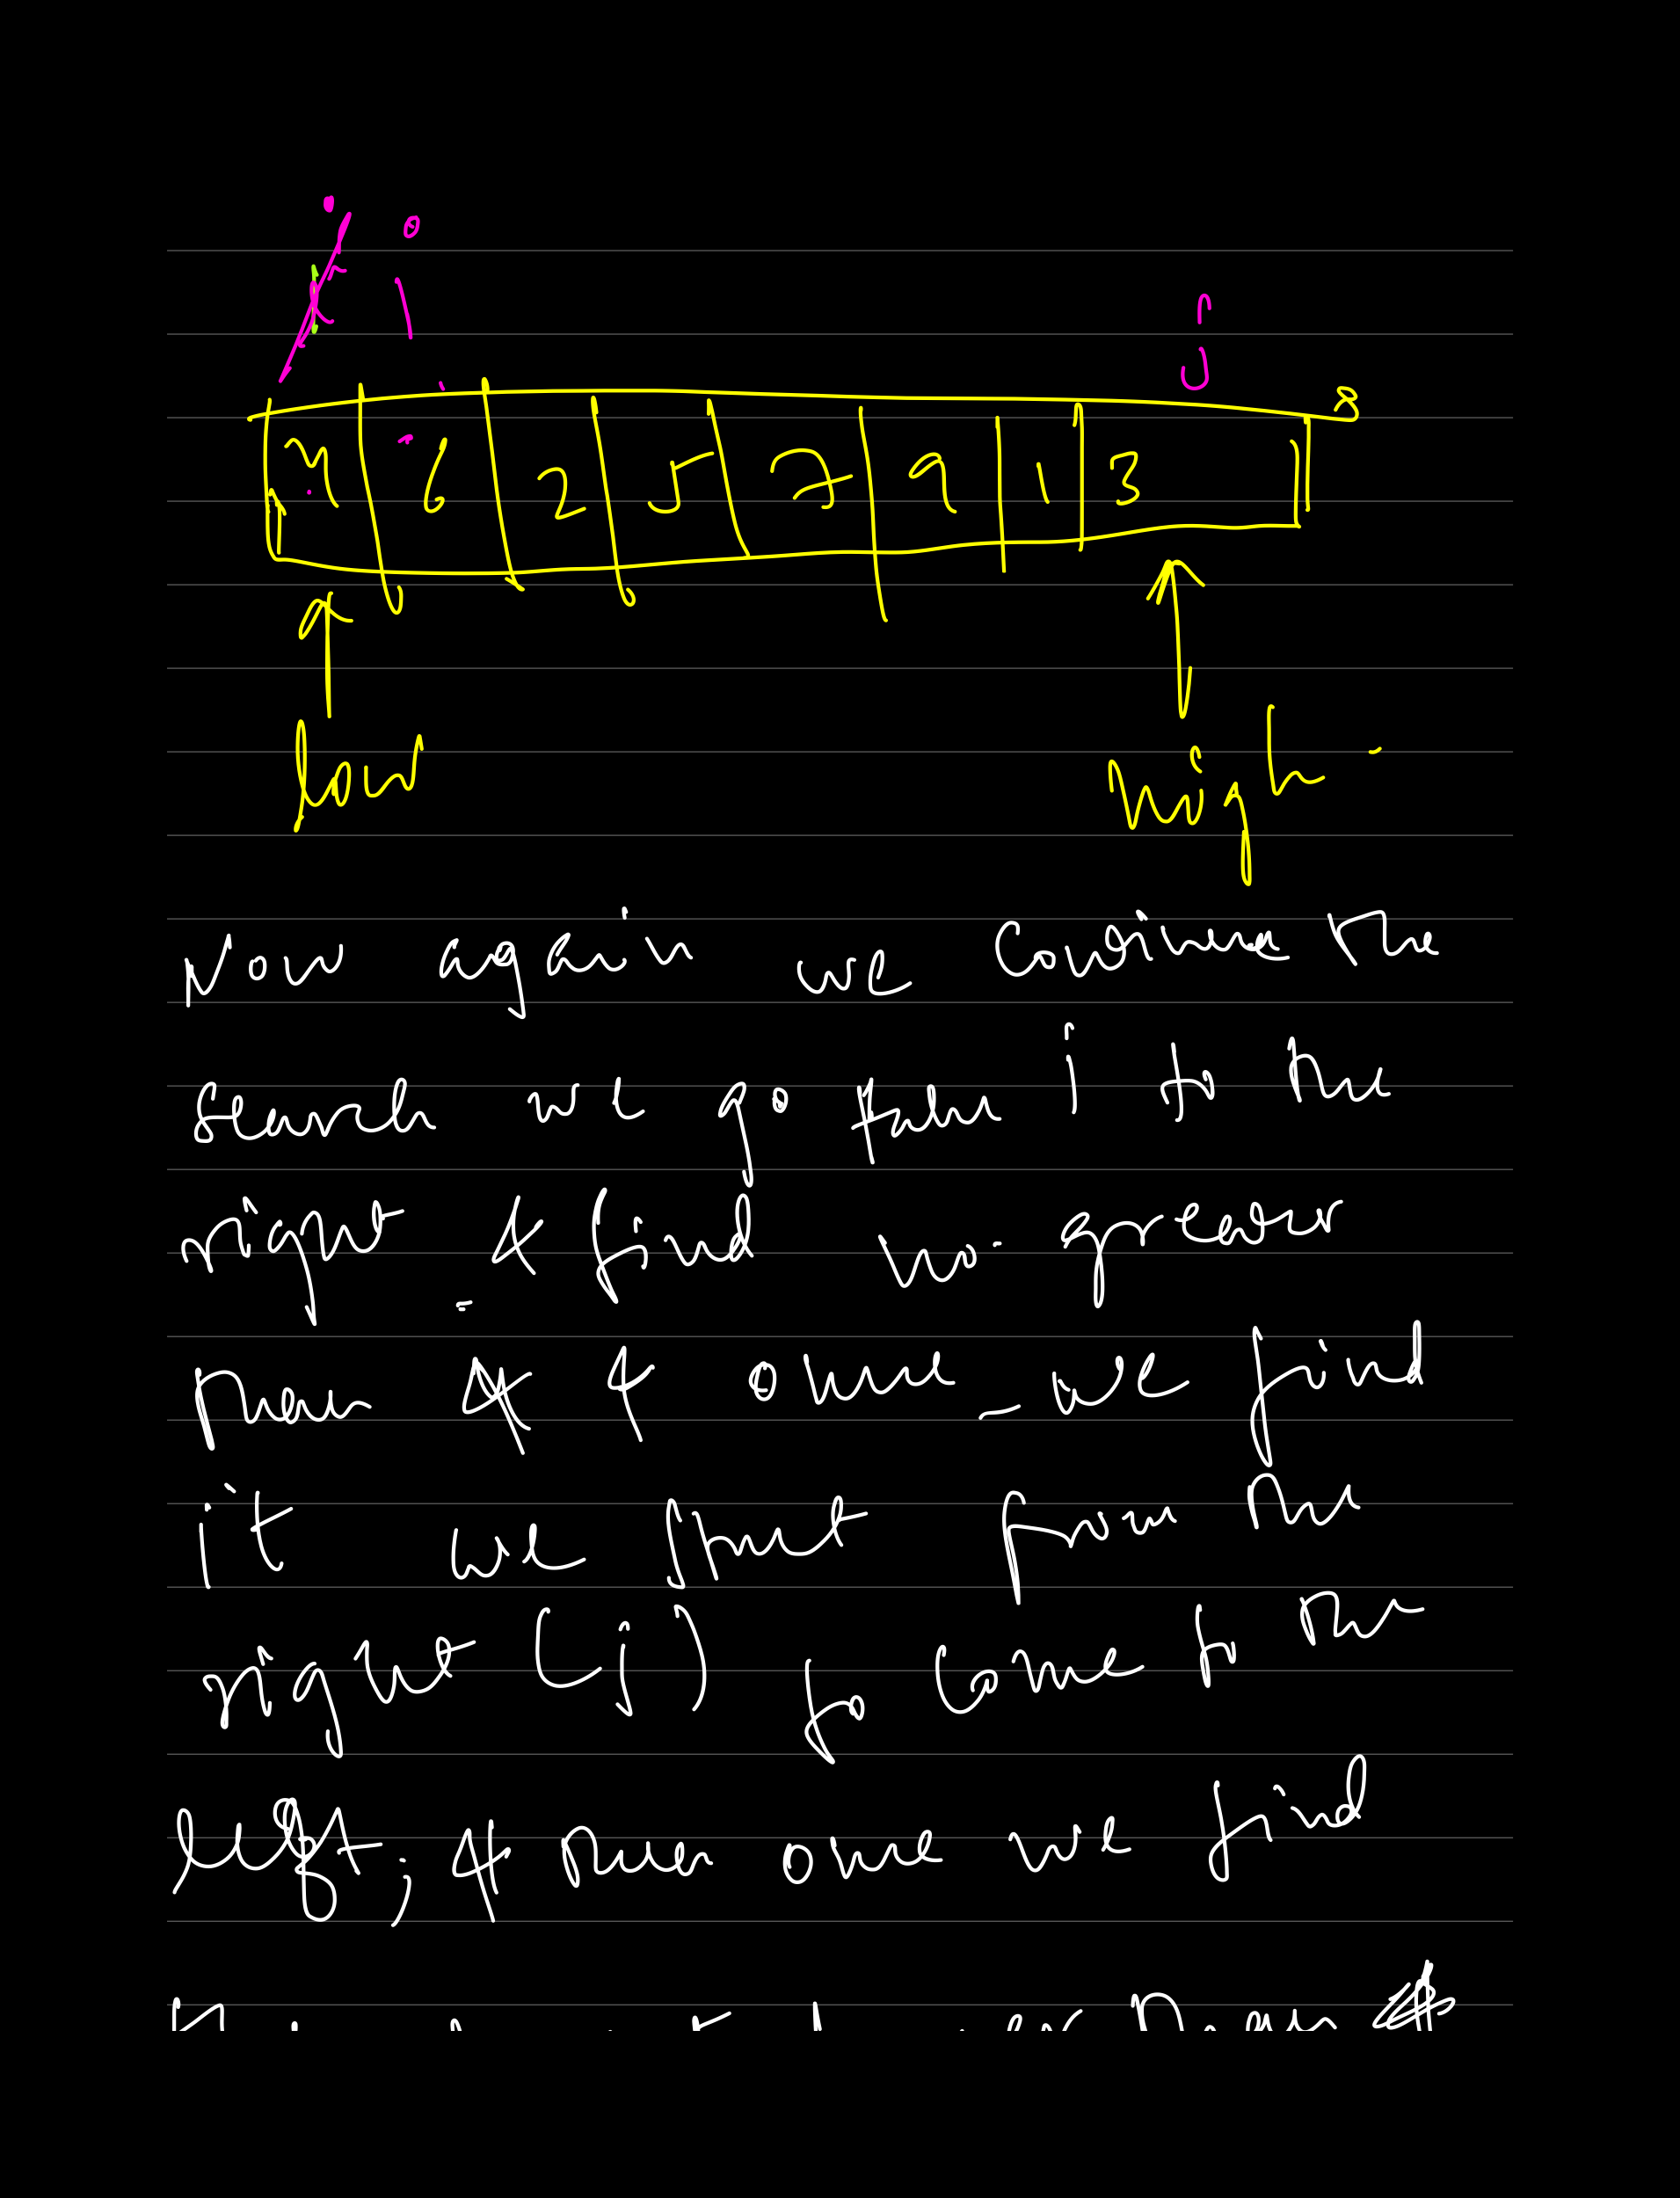 i j
4 6 2 5 7 9 1 3
low high
Now again we continue the
search we go take i to the
right & find no. greater
than 4 & once we find
it we start from the
right (j) to come to the
left; & then once we find